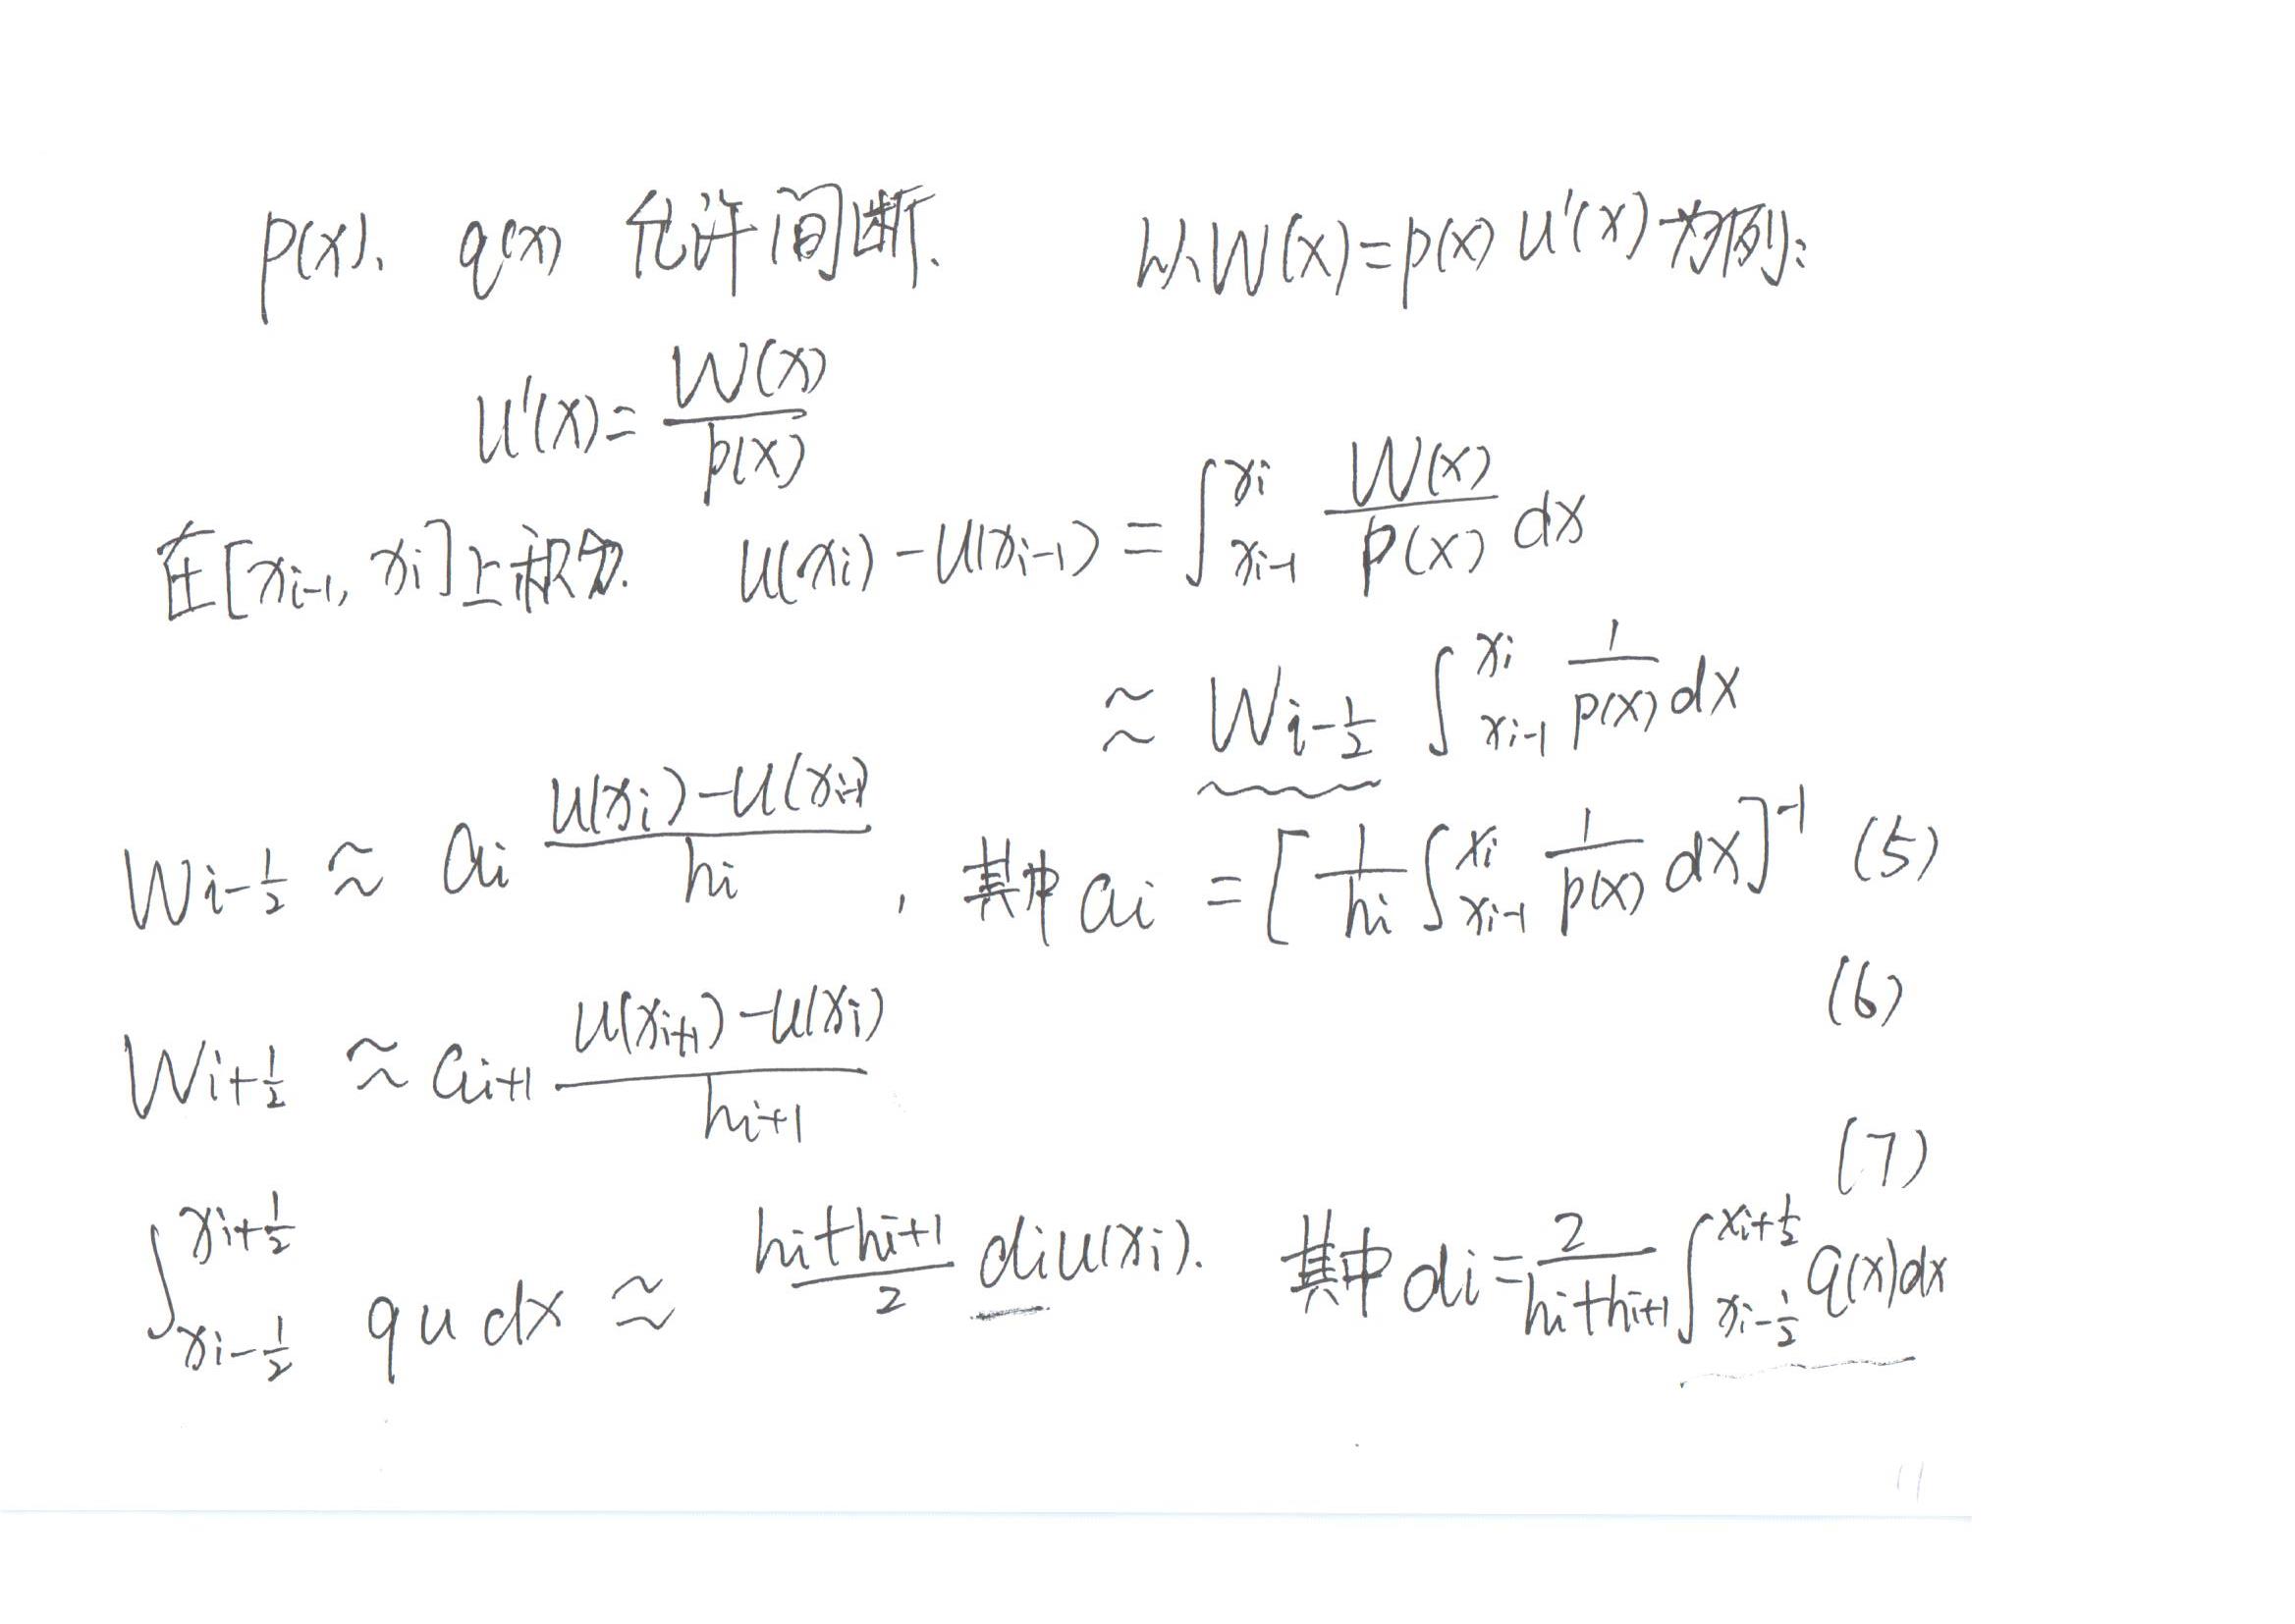 p(x)、q(x) 允许间断. 以W(x)=p(x)u'(x)为例:
u'(x)= \frac{W(x)}{p(x)}
在[x_{i-1}, x_i]上积分. u(x_i)-u(x_{i-1}) = \int_{x_{i-1}}^{x_i} \frac{W(x)}{p(x)} dx
≈ W_{i-\frac{1}{2}} \int_{x_{i-1}}^{x_i} \frac{1}{p(x)} dx
W_{i-\frac{1}{2}} ≈ a_i \frac{u(x_i)-u(x_{i-1})}{h_i}, 其中 a_i = [\frac{1}{h_i} \int_{x_{i-1}}^{x_i} \frac{1}{p(x)} dx]^{-1} (5)
W_{i+\frac{1}{2}} ≈ a_{i+1} \frac{u(x_{i+1})-u(x_i)}{h_{i+1}} (6)
\int_{x_{i-\frac{1}{2}}}^{x_{i+\frac{1}{2}}} qu dx ≈ \frac{h_i+h_{i+1}}{2} d_i u(x_i). 其中 d_i = \frac{2}{h_i+h_{i+1}} \int_{x_{i-\frac{1}{2}}}^{x_{i+\frac{1}{2}}} q(x)dx (7)